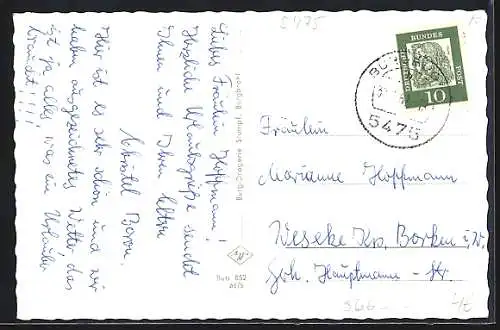 5475
Liebes Fräulein Hoffmann!
Herzliche Urlaubsgrüße sendet
Ihnen und Ihren Eltern
Christel Boron.
Hier ist es sehr schön und wir
haben ausgezeichnetes Wetter, das
ist ja alles, was ein Urlauber
braucht!!!!
Burg-Drogerie
Burgbrohl
DEUTSCHE BUNDESPOST
10
5475
Fräulein
Marianne Hoffmann
Weseke Krs. Borken i. W.
Gerh. Hauptmann-Str.